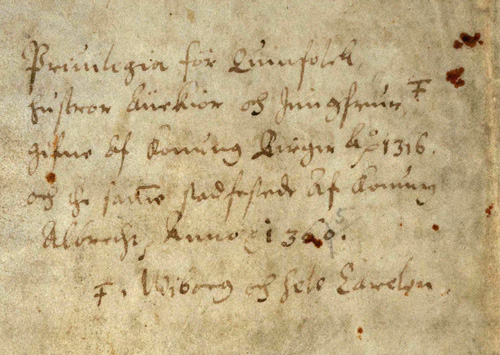 Priuilegia för Quinfolck,
hustror änckior och Jungfrur, ŧ
gifne Af Konung Birger Aº 1316.
och the samme stadfestede Af Konung
Albrecht, Anno 1360. 5
ŧ. i Wiborg och hele Carelen.